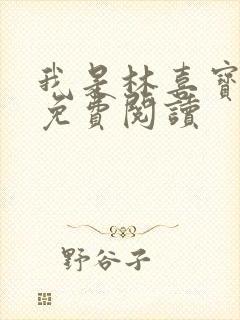 我是林喜寶
免費閱讀
野谷子